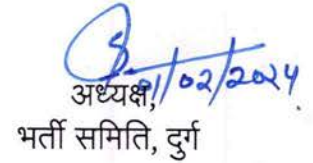 01/02/2024
अध्यक्ष,
भर्ती समिति, दुर्ग